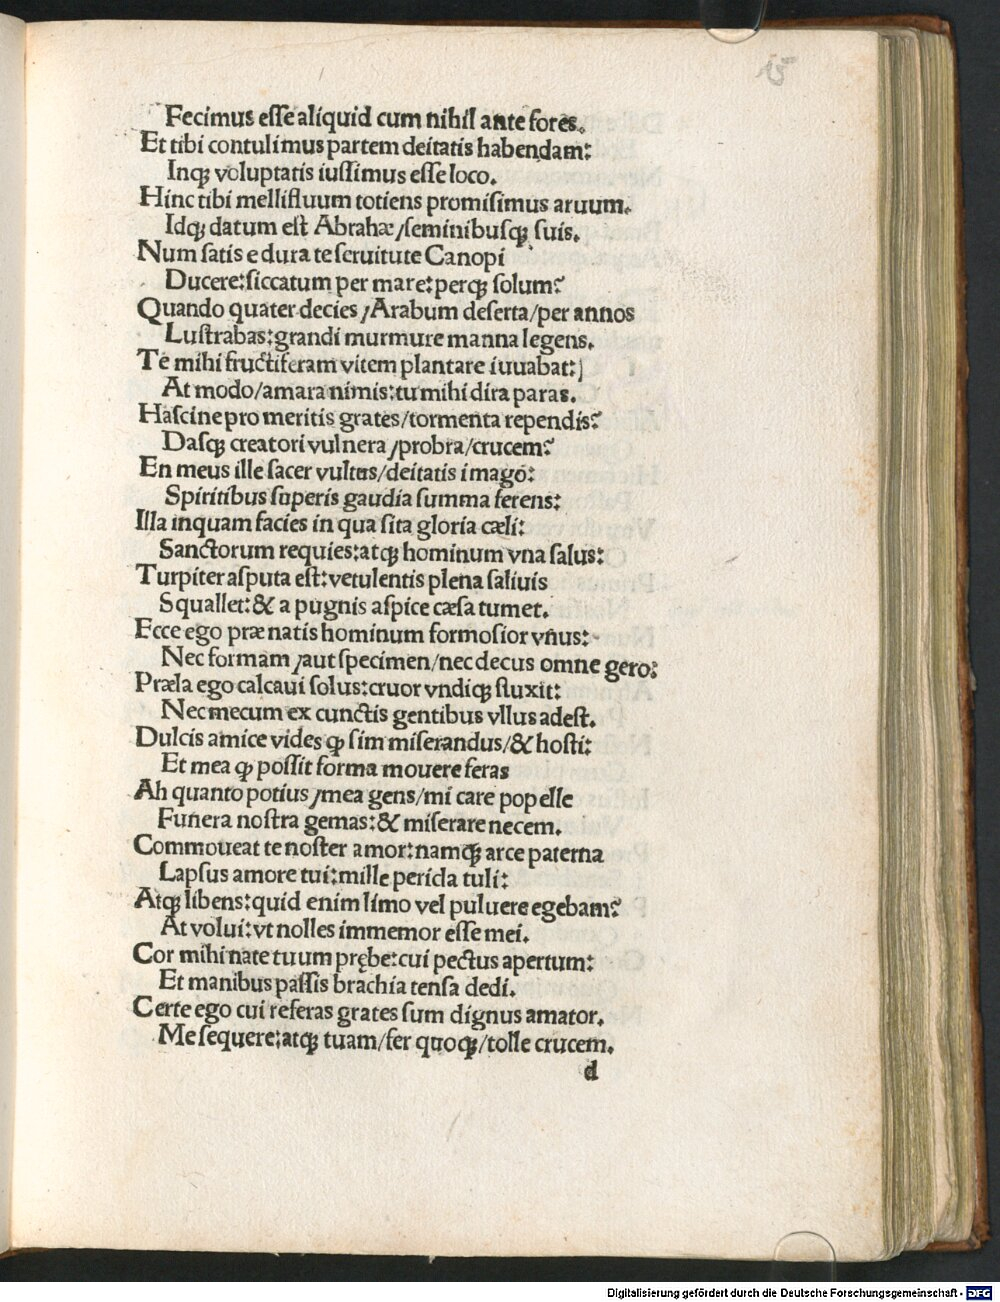 15
Fecimus esse aliquid cum nihil ante fores.
Et tibi contulimus partem deitatis habendam:
Inqꝫ voluptatis iussimus esse loco.
Hinc tibi mellifluum totiens promisimus aruum.
Idqꝫ datum est Abrahæ/seminibusqꝫ suis.
Num satis e dura te seruitute Canopi
Ducere:siccatum per mare:perqꝫ solum?
Quando quater decies/Arabum deserta/per annos
Lustrabas:grandi murmure manna legens.
Te mihi fructiferam vitem plantare iuuabat:
At modo/amara nimis:tu mihi dira paras.
Hascine pro meritis grates/tormenta rependis?
Dasqꝫ creatori vulnera/probra/crucem?
En meus ille sacer vultus/deitatis imago:
Spiritibus superis gaudia summa ferens:
Illa inquam facies in qua sita gloria cæli:
Sanctorum requies:atqꝫ hominum vna salus:
Turpiter asputa est:vetulentis plena saliuis
Squallet:& a pugnis aspice cæsa tumet.
Ecce ego præ natis hominum formosior vnus:
Nec formam/aut specimen/nec decus omne gero:
Præla ego calcaui solus:cruor vndiqꝫ fluxit:
Nec mecum ex cunctis gentibus vllus adest.
Dulcis amice vides ꝙ sim miserandus/& hosti:
Et mea ꝙ possit forma mouere feras
Ah quanto potius/mea gens/mi care popelle
Funera nostra gemas:& miserare necem.
Commoueat te noster amor:namqꝫ arce paterna
Lapsus amore tui:mille pericla tuli:
Atqꝫ libens:quid enim limo vel puluere egebam?
At volui:vt nolles immemor esse mei.
Cor mihi nate tuum prębe:cui pectus apertum:
Et manibus passis brachia tensa dedi.
Certe ego cui referas grates sum dignus amator.
Me sequere:atqꝫ tuam/fer quoqꝫ/tolle crucem.
d
Digitalisierung gefördert durch die Deutsche Forschungsgemeinschaft - DFG